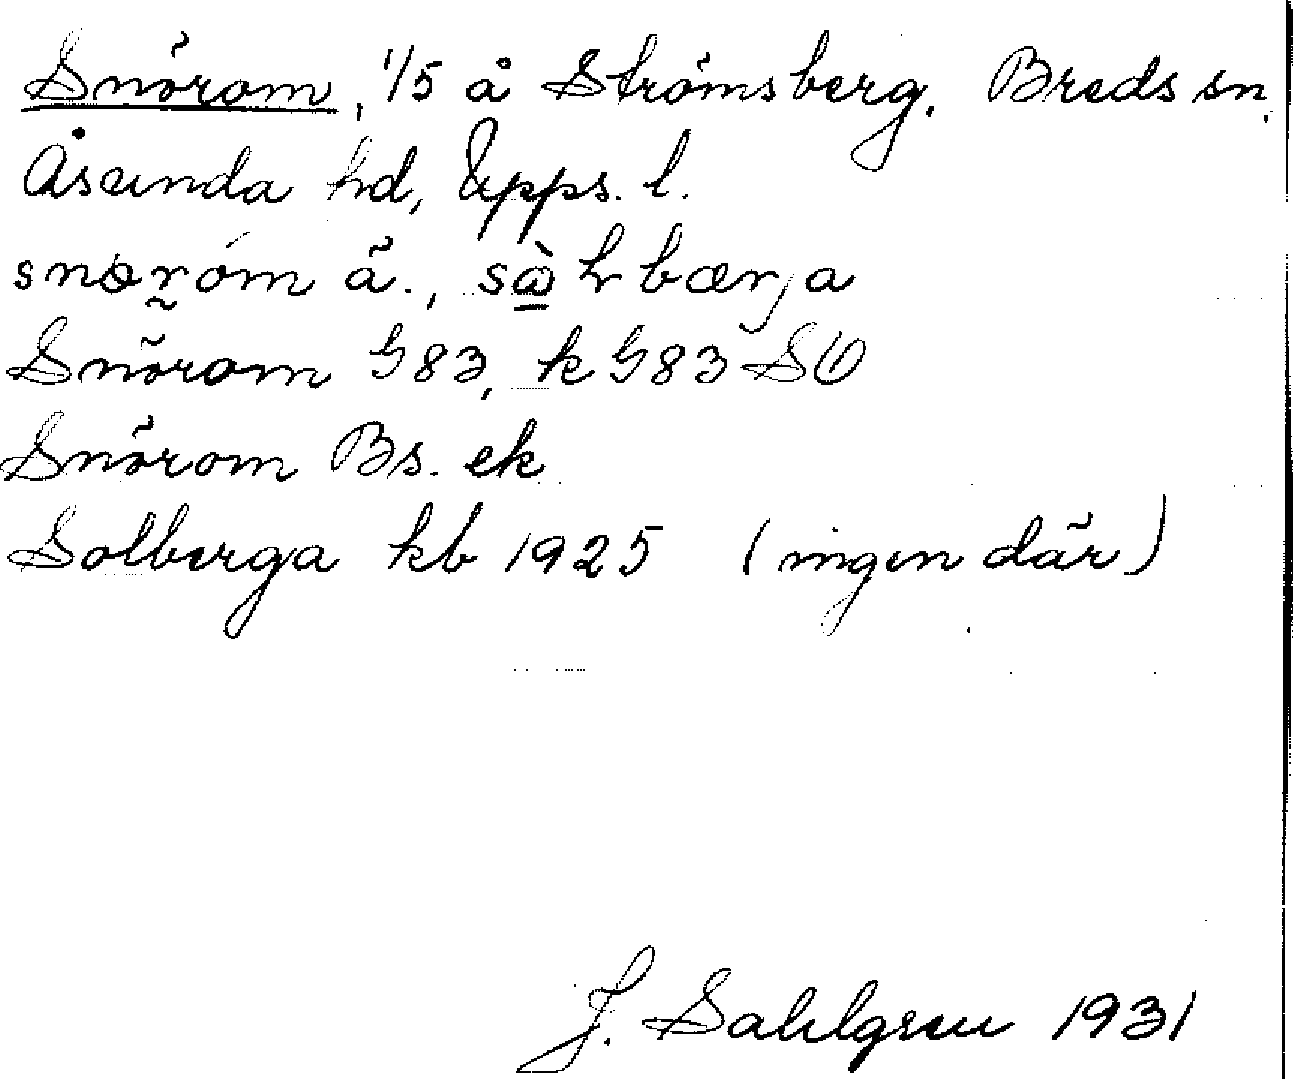 Snörom, 1/5 å Strömsberg. Breds sn.
Åsunda hd, Upps. l.
Snörom G83, k G83 SO
Snörom Bs. ek
Solberga kb 1925 (ingen där)
J. Sahlgren 1931